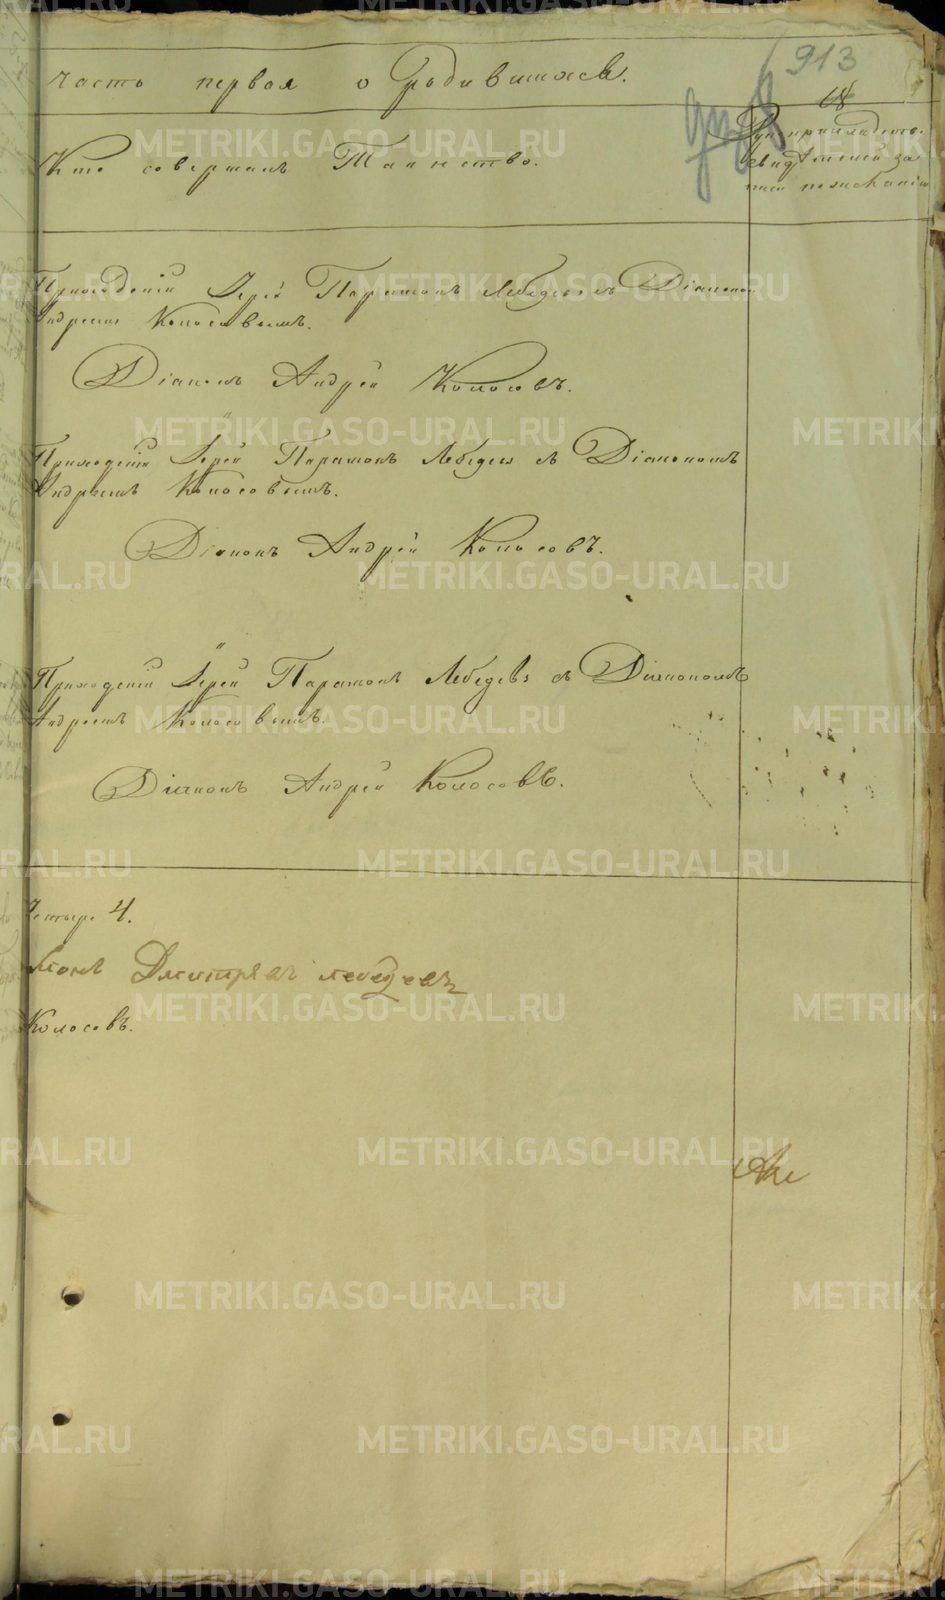 913
18
часть первая о Родившихся.
Кто совершалъ Таинство.
Рукоприкладств.
свидѣтелей за
писи по желанію
Приходскій Іерей Парамонъ Лебедевъ съ Діаконом
Андреемъ Колосовымъ.
Діаконъ Андрей Колосовъ.
Приходскій Іерей Парамонъ Лебедевъ съ Діакономъ
Андреемъ Колосовымъ.
Діаконъ Андрей Колосовъ.
Приходскій Іерей Парамонъ Лебедевъ съ Діакономъ
Андреемъ Колосовымъ.
Діаконъ Андрей Колосовъ.
четыре 4.
Дмитріевъ лебедевъ
Колосовъ.
METRIKI.GASO-URAL.RU